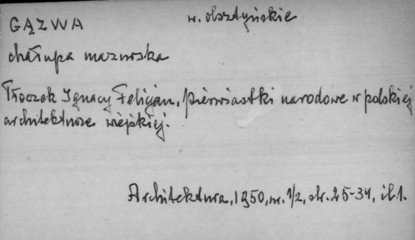 GĄZWA
w. olsztyńskie
chałupa mazurska
Tłoczek Ignacy Felicjan, Pierwiastki narodowe w polskiej
architekturze wiejskiej.
Architektura, 1950, nr. 1/2, str. 25-34, il. 1.